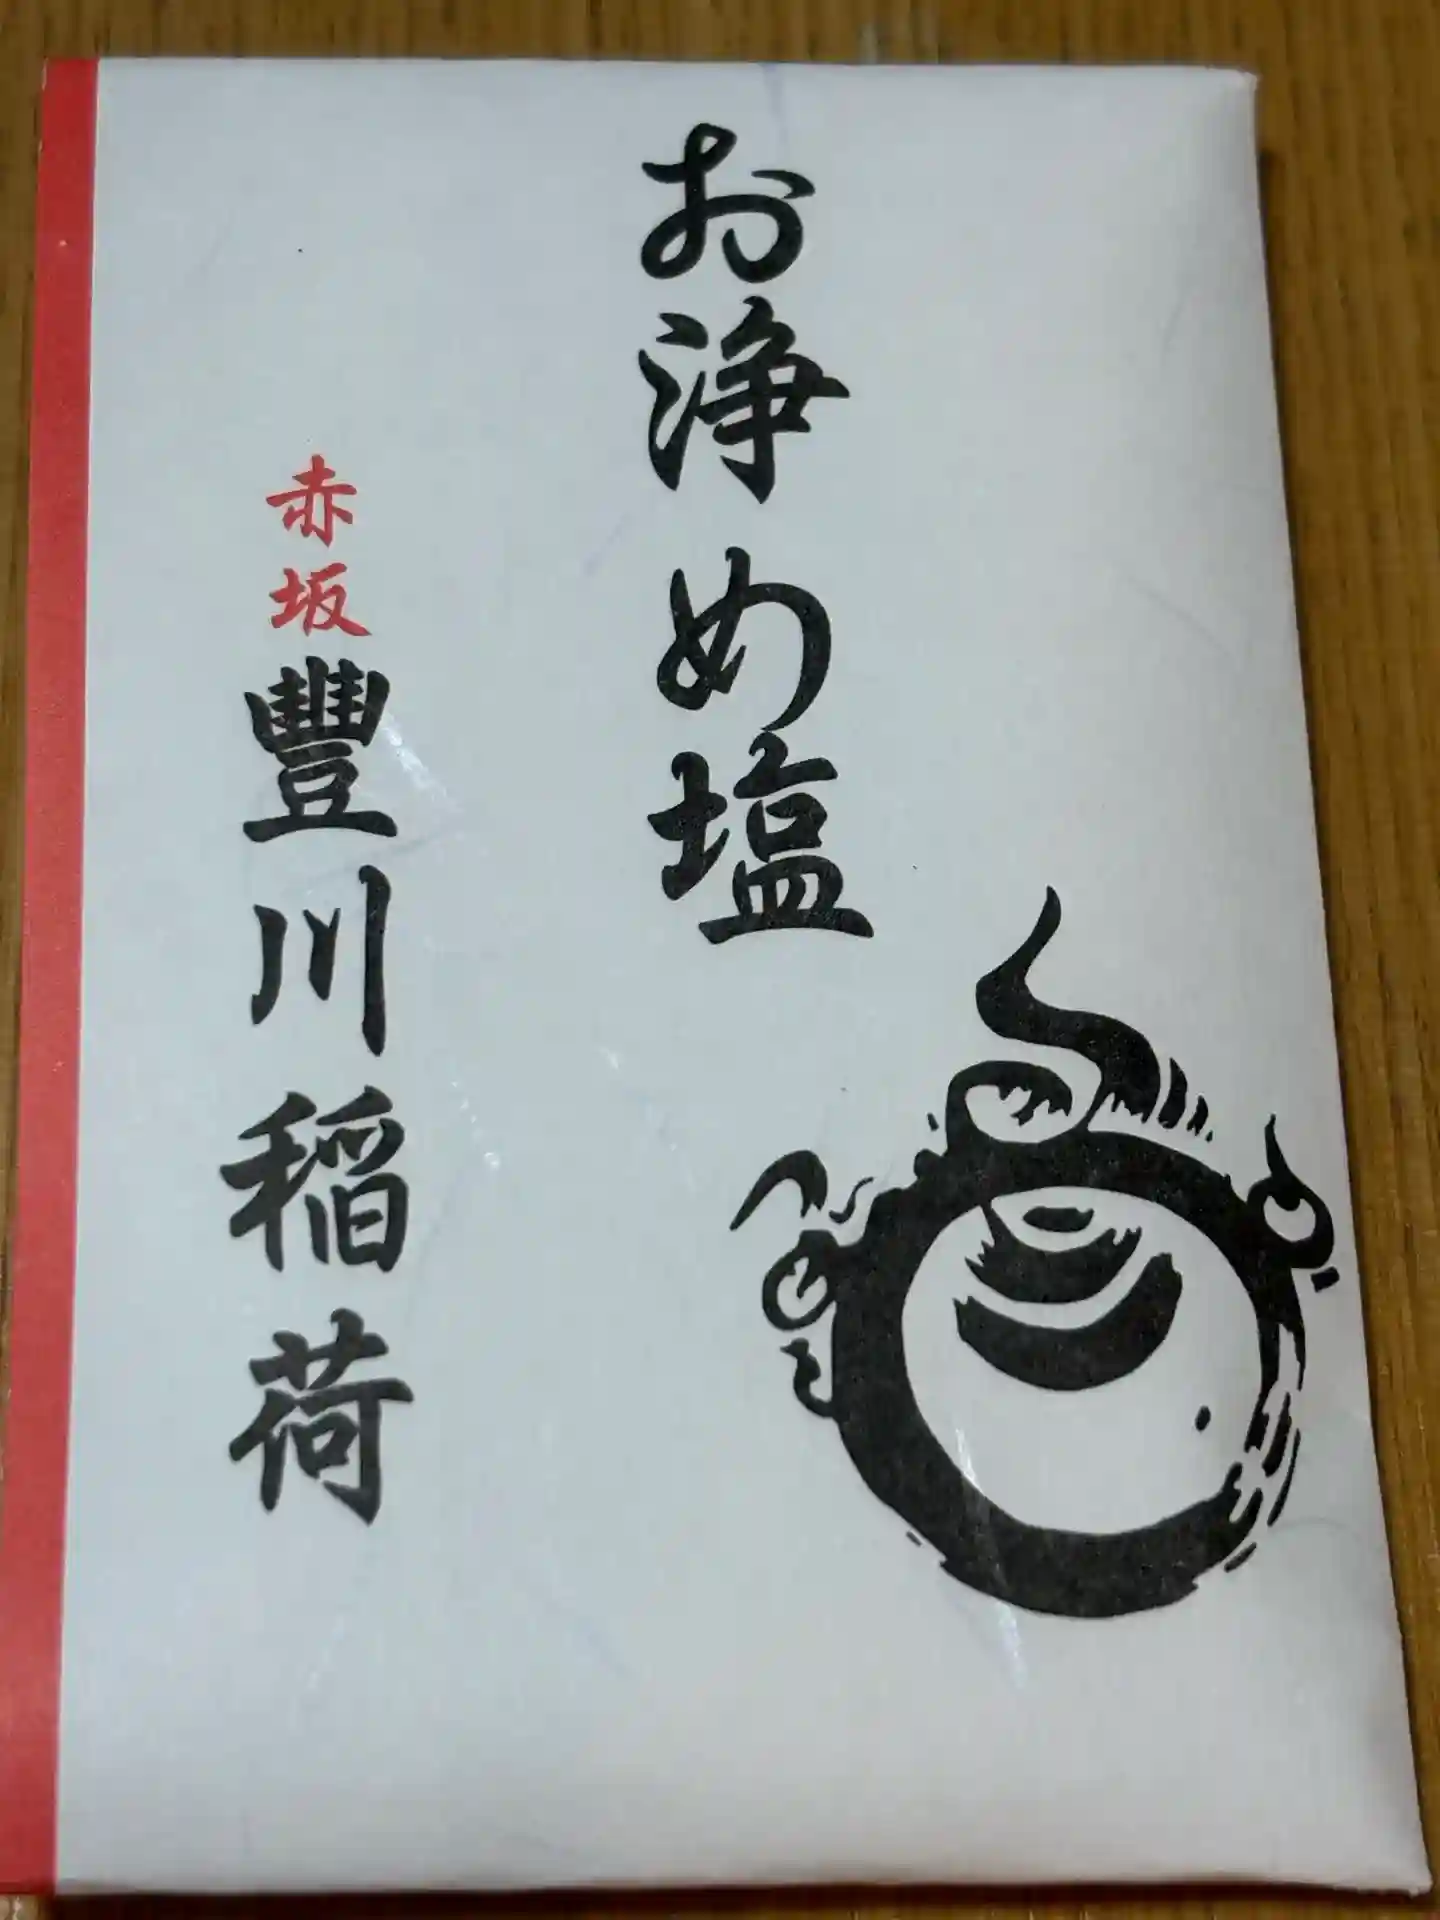 お浄め塩
赤坂豐川稲荷